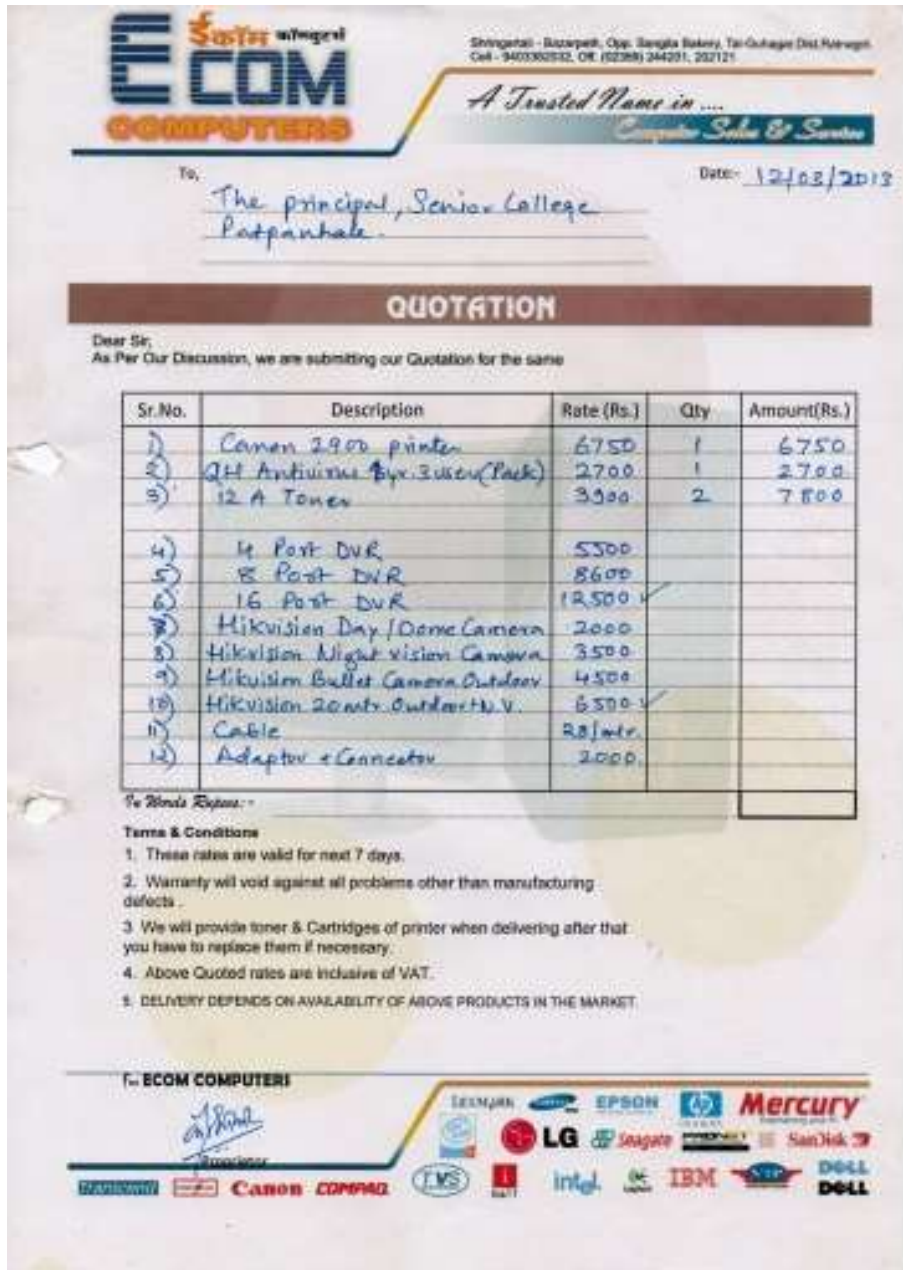 ईकॉम कॉम्प्युटर्स
ECOM
COMPUTERS
Shringartali - Bazarpeth, Opp. Sangita Bakery, Tal-Guhagar Dist.Ratnagiri
Cell - 9403362032, Off. (02359) 244201, 202121
A Trusted Name in ....
Computer Sales & Service
To,
Date:- 12/03/2013
The principal, Senior College
Patpanhale.
QUOTATION
Dear Sir,
As Per Our Discussion, we are submitting our Quotation for the same
Sr.No. Description Rate (Rs.) Qty Amount(Rs.)
1) Canon 2900 printer 6750 1 6750
2) QH Antivirus yr. 3 user (Pack) 2700 1 2700
3) 12 A Toner 3900 2 7800
4) 4 Port DVR 5500
5) 8 Port DVR 8600
6) 16 Port DVR 12500 ✓
7) Hikvision Day / Dome Camera 2000
8) Hikvision Night vision Camera 3500
9) Hikvision Bullet Camera Outdoor 4500
10) Hikvision 20 mtr. Outdoor N.V. 6500 ✓
11) Cable 28/mtr.
12) Adaptor + Connector 2000
In Words Rupees:-
Terms & Conditions
1. These rates are valid for next 7 days.
2. Warranty will void against all problems other than manufacturing
defects .
3 We will provide toner & Cartridges of printer when delivering after that
you have to replace them if necessary.
4. Above Quoted rates are inclusive of VAT.
5. DELIVERY DEPENDS ON AVAILABILITY OF ABOVE PRODUCTS IN THE MARKET
For ECOM COMPUTERS
Proprietor
LEXMARK EPSON hp Mercury
LG Seagate SanDisk
Canon COMPAQ TVS intel IBM DELL
DELL